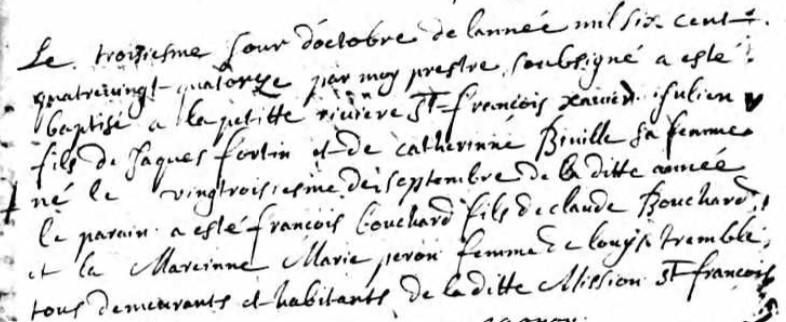 Le troisiesme jour doctobre de lannée mil six cent
quatrevingt quatorze par moy prestre soubsigné a esté
baptisé a la petitte riviere St francois xavier Julien
fils de Jaques fortin et de catherinne Biville sa femme
né le vingtroisiesme de septembre de la ditte année
le parain a esté francois bouchard fils de claude Bouchard
et la Mareinne Marie peron femme de louys tremblé
tous demeurants et habitants de la ditte Mission St francois